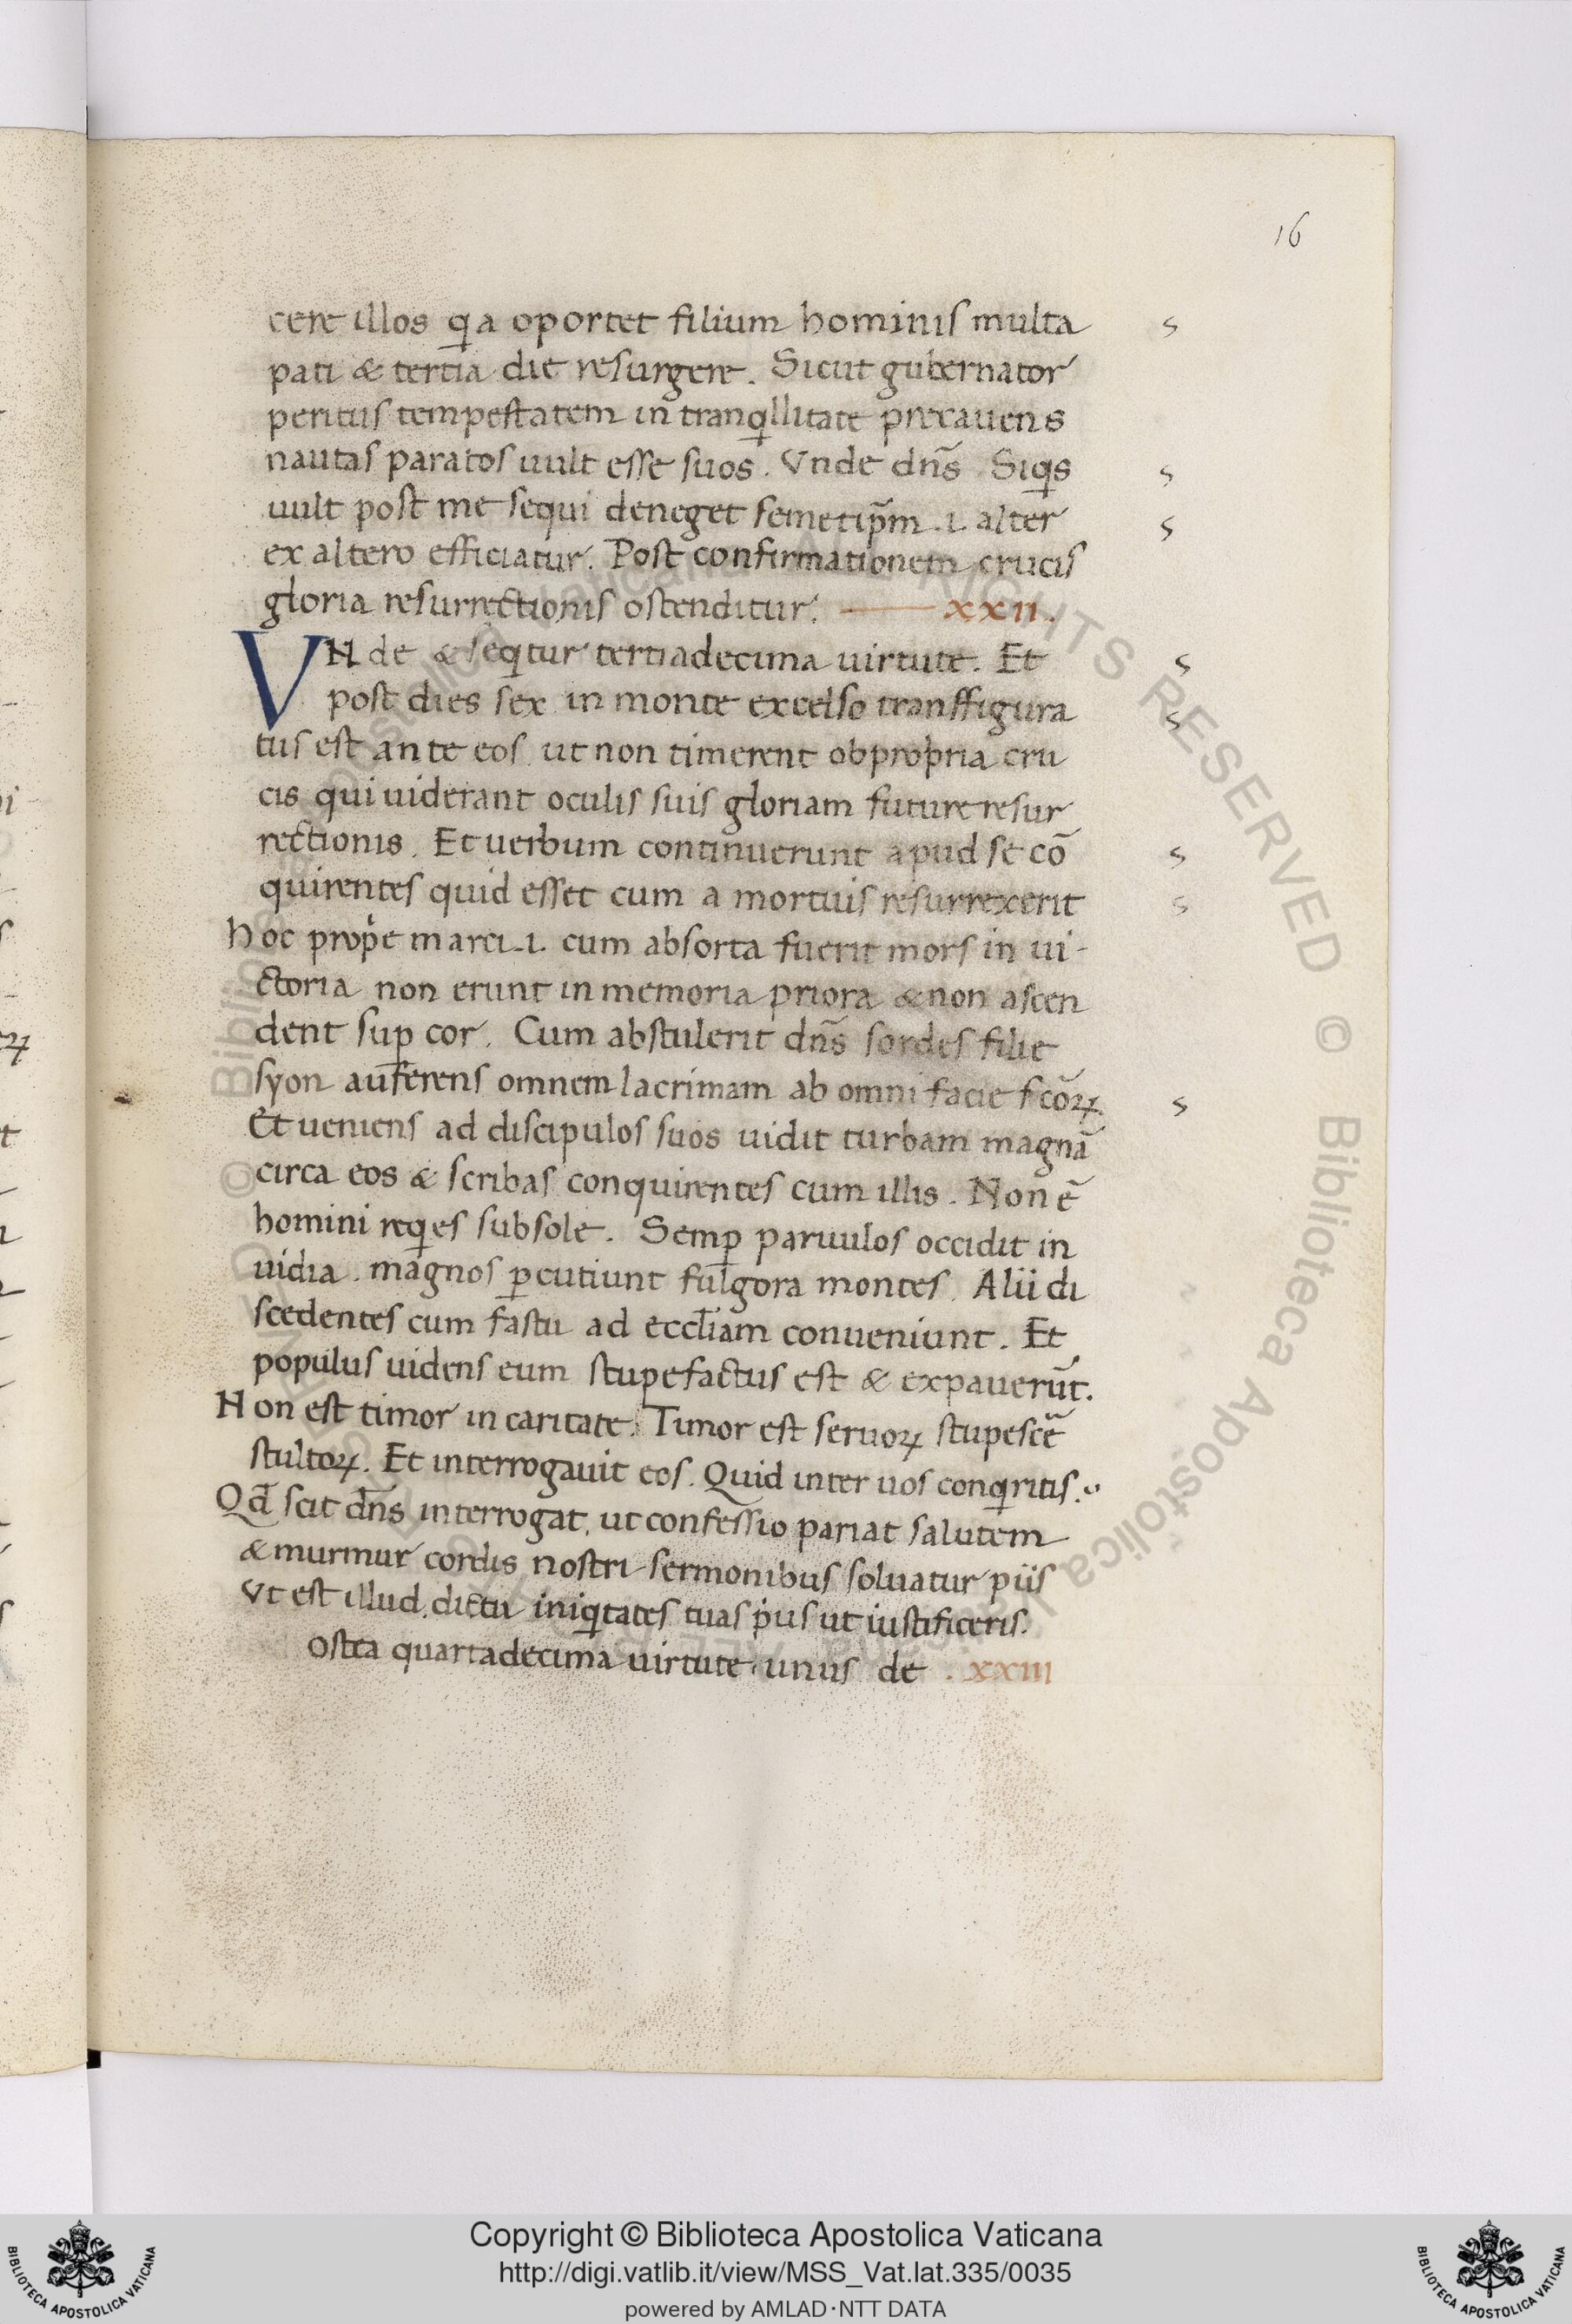 16
cere illos qa oportet filium hominis multa
pati & tertia die resurgere. Sicut gubernator
peritus tempestatem in tranqllitate precauens
nautas paratos uult esse suos. Vnde dn̄s Siqs
uult post me sequi deneget semetip̄m .i. alter
ex altero efficiatur. Post confirmationem crucis
gloria resurrectionis ostenditur. xxii.
VNde & seqtur tertiadecima uirtute. Et
post dies sex in monte excelso transffigura
tus est ante eos ut non timerent obpropria cru
cis qui uiderant oculis suis gloriam future resur
rectionis. Et uerbum continuerunt apud se cō
quirentes quid esset cum a mortuis resurrexerit
hoc prop̍e marci .i. cum absorta fuerit mors in ui-
ctoria non erunt in memoria priora & non ascen
dent sup̲ cor. Cum abstulerit dn̄s sordes filie
syon auferens omnem lacrimam ab omni facie s̄coꝝ.
Et ueniens ad discipulos suos uidit turbam magnā
circa eos & scribas conquirentes cum illis. Non ē
homini reqes subsole. Semꝑ paruulos occidit in
uidia. magnos ꝑcutiunt fulgora montes. Alii di
scedentes cum fastu ad eccl̄iam conueniunt. Et
populus uidens eum stupefactus est & expauerūt.
Non est timor in caritate. Timor est seruoꝝ stupescē
stultoꝝ. Et interrogauit eos. Quid inter uos conqritis.
Qd̄ scit dn̄s interrogat, ut confessio pariat salutem
& murmur cordis nostri sermonibus soluatur piis
Vt est illud. dic tu iniqtates tuas p̍us ut iustificeris.
ostea quartadecima uirtute unus de . xxiii
Copyright © Biblioteca Apostolica Vaticana
http://digi.vatlib.it/view/MSS_Vat.lat.335/0035
powered by AMLAD·NTT DATA
BIBLIOTECA APOSTOLICA VATICANA
BIBLIOTECA APOSTOLICA VATICANA